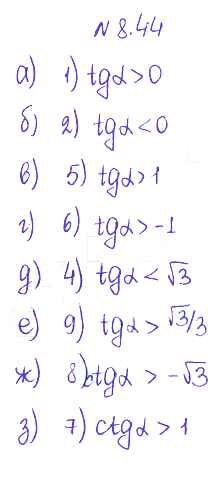 N 8.44
а) 1) tgα>0
б) 2) tgα<0
в) 5) tgα>1
г) 6) tgα>-1
д) 4) tgα<√3
е) 9) tgα>√3/3
ж) 8) tgα>-√3
з) 7) ctgα>1